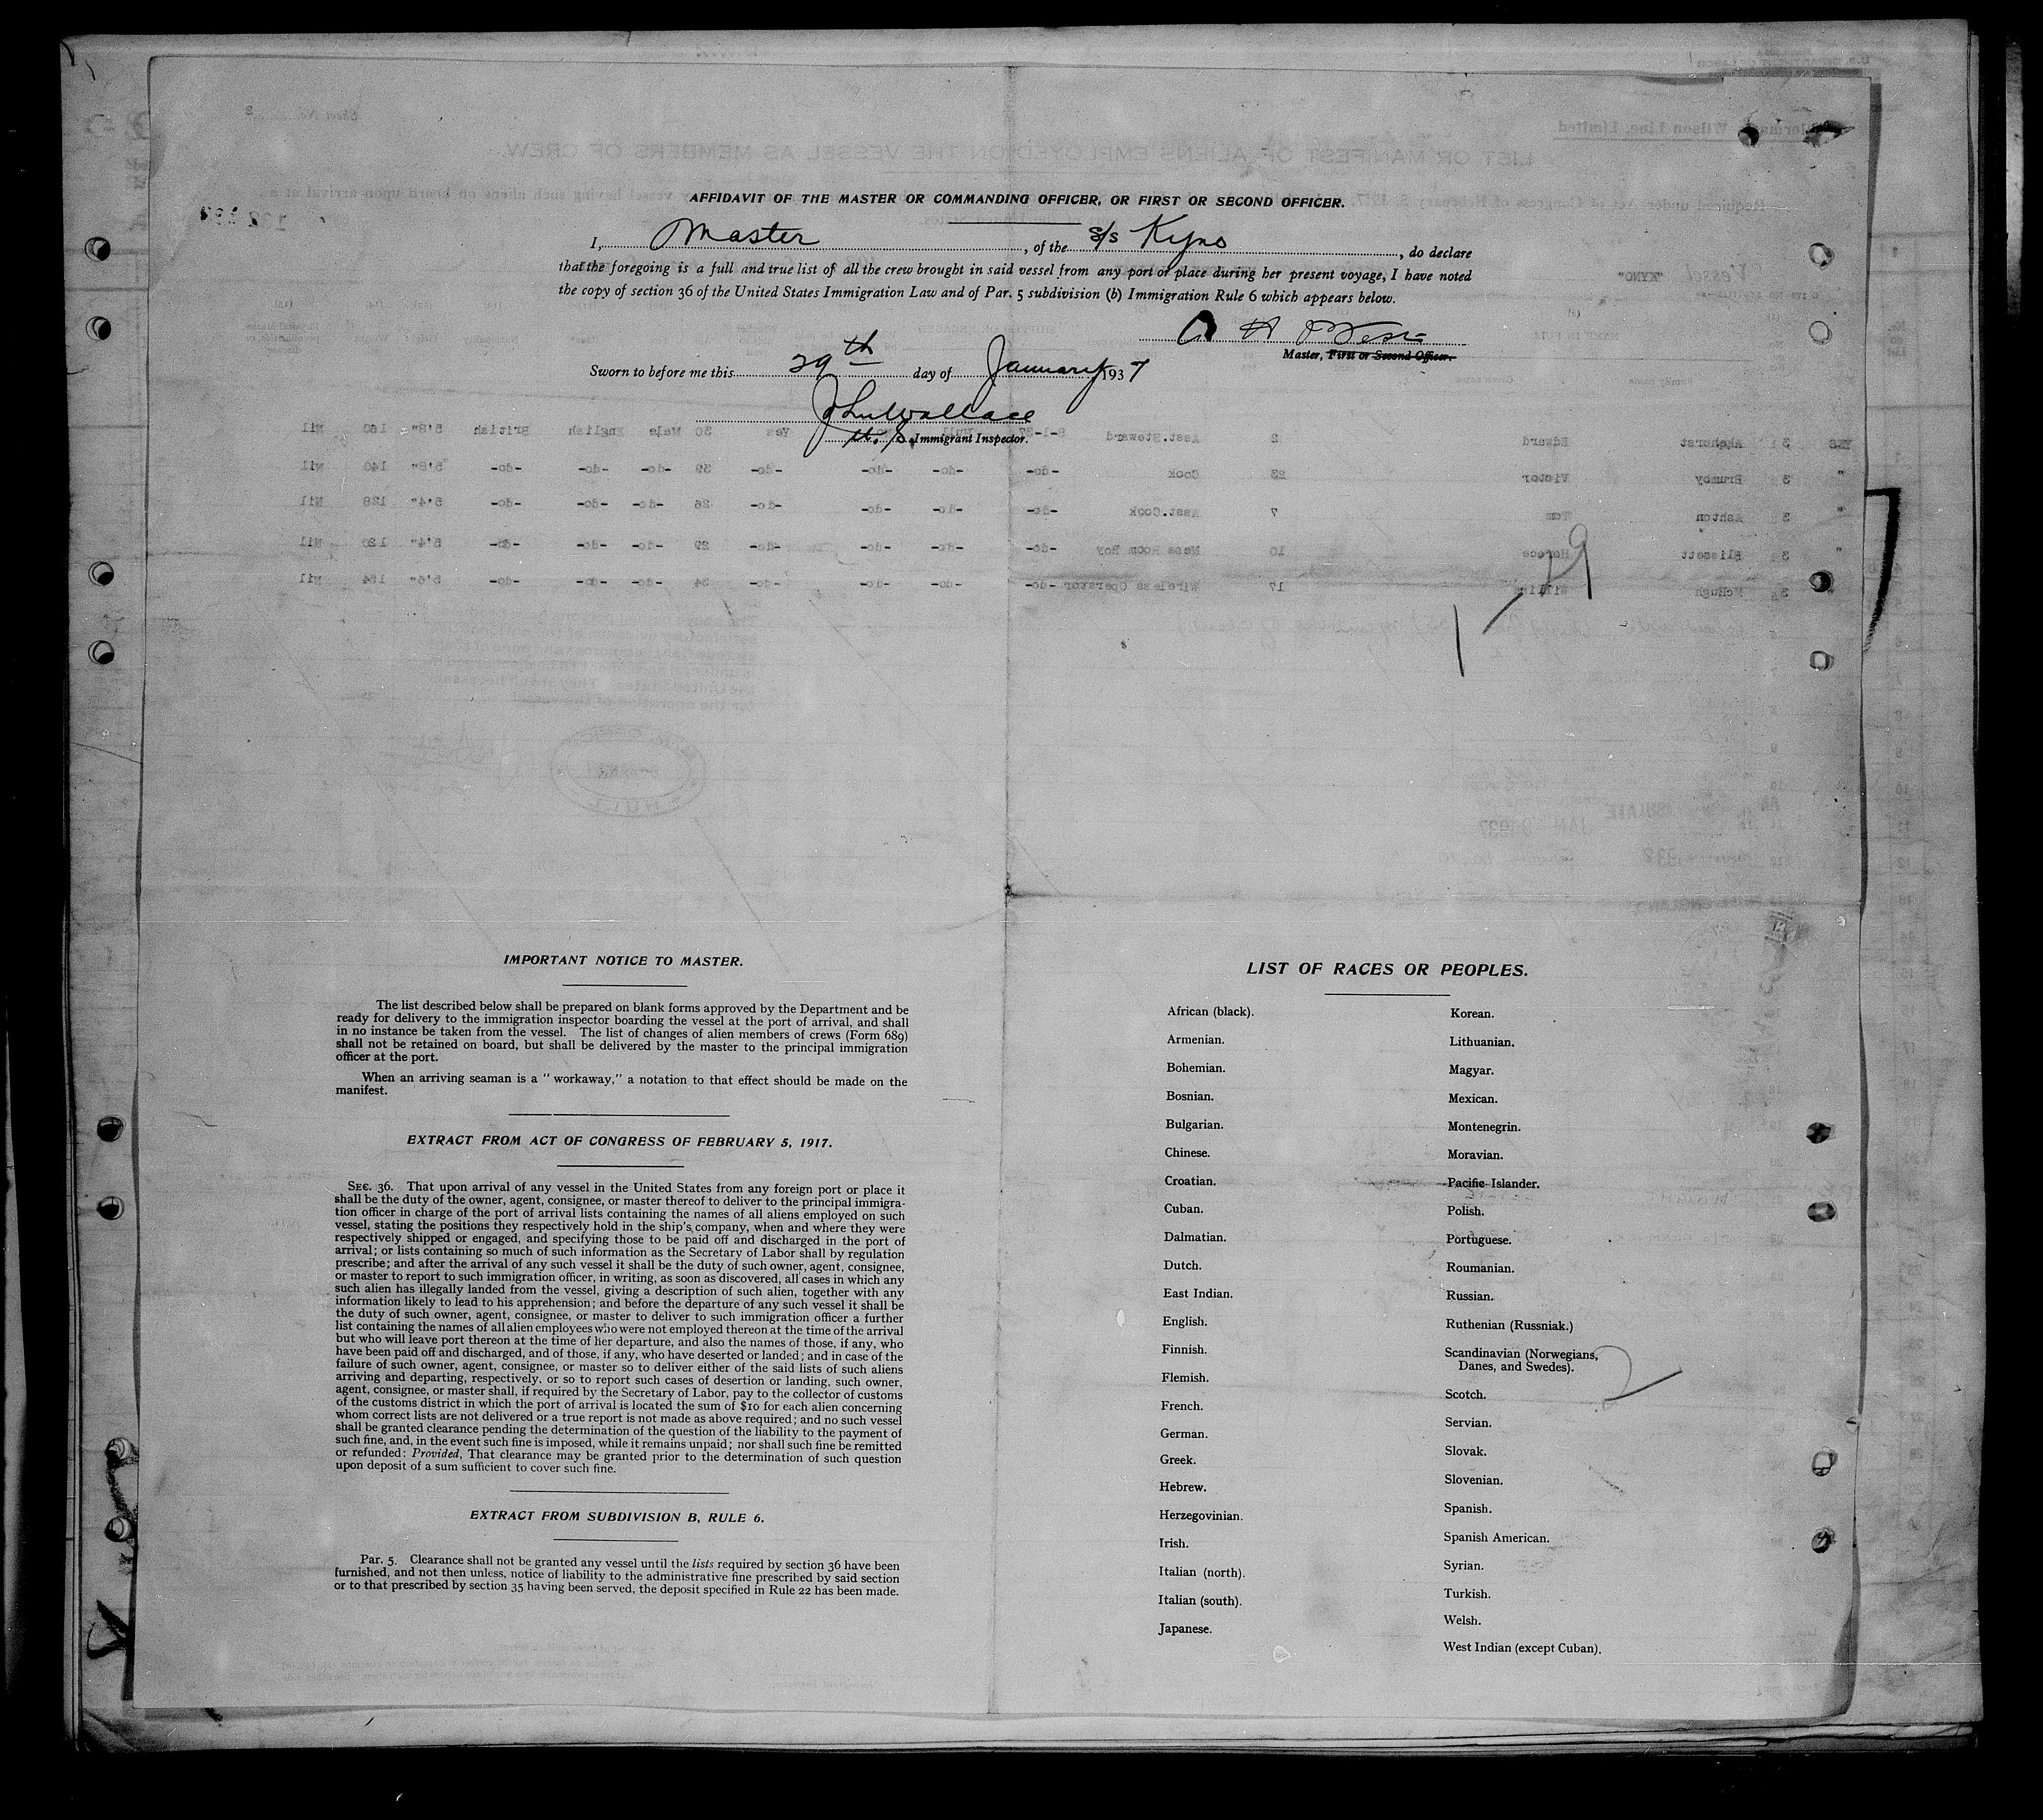 AFFIDAVIT OF THE MASTER OR COMMANDING OFFICER, OR FIRST OR SECOND OFFICER.
I, Master, of the S/S Kyno, do declare
that the foregoing is a full and true list of all the crew brought in said vessel from any port or place during her present voyage, I have noted
the copy of section 36 of the United States Immigration Law and of Par. 5 subdivision (b) Immigration Rule 6 which appears below.
A H West
Master, First or Second Officer.
Sworn to before me this 29th day of January 1937
Jhn Wallace
U. S. Immigrant Inspector.
1-29
IMPORTANT NOTICE TO MASTER.
The list described below shall be prepared on blank forms approved by the Department and be
ready for delivery to the immigration inspector boarding the vessel at the port of arrival, and shall
in no instance be taken from the vessel. The list of changes of alien members of crews (Form 689)
shall not be retained on board, but shall be delivered by the master to the principal immigration
officer at the port.
When an arriving seaman is a " workaway," a notation to that effect should be made on the
manifest.
EXTRACT FROM ACT OF CONGRESS OF FEBRUARY 5, 1917.
SEC. 36. That upon arrival of any vessel in the United States from any foreign port or place it
shall be the duty of the owner, agent, consignee, or master thereof to deliver to the principal immigra-
tion officer in charge of the port of arrival lists containing the names of all aliens employed on such
vessel, stating the positions they respectively hold in the ship's company, when and where they were
respectively shipped or engaged, and specifying those to be paid off and discharged in the port of
arrival; or lists containing so much of such information as the Secretary of Labor shall by regulation
prescribe; and after the arrival of any such vessel it shall be the duty of such owner, agent, consignee,
or master to report to such immigration officer, in writing, as soon as discovered, all cases in which any
such alien has illegally landed from the vessel, giving a description of such alien, together with any
information likely to lead to his apprehension; and before the departure of any such vessel it shall be
the duty of such owner, agent, consignee, or master to deliver to such immigration officer a further
list containing the names of all alien employees who were not employed thereon at the time of the arrival
but who will leave port thereon at the time of her departure, and also the names of those, if any, who
have been paid off and discharged, and of those, if any, who have deserted or landed; and in case of the
failure of such owner, agent, consignee, or master so to deliver either of the said lists of such aliens
arriving and departing, respectively, or so to report such cases of desertion or landing, such owner,
agent, consignee, or master shall, if required by the Secretary of Labor, pay to the collector of customs
of the customs district in which the port of arrival is located the sum of $10 for each alien concerning
whom correct lists are not delivered or a true report is not made as above required; and no such vessel
shall be granted clearance pending the determination of the question of the liability to the payment of
such fine, and, in the event such fine is imposed, while it remains unpaid; nor shall such fine be remitted
or refunded: Provided, That clearance may be granted prior to the determination of such question
upon deposit of a sum sufficient to cover such fine.
EXTRACT FROM SUBDIVISION B, RULE 6.
Par. 5. Clearance shall not be granted any vessel until the lists required by section 36 have been
furnished, and not then unless, notice of liability to the administrative fine prescribed by said section
or to that prescribed by section 35 having been served, the deposit specified in Rule 22 has been made.
LIST OF RACES OR PEOPLES.
African (black).
Armenian.
Bohemian.
Bosnian.
Bulgarian.
Chinese.
Croatian.
Cuban.
Dalmatian.
Dutch.
East Indian.
English.
Finnish.
Flemish.
French.
German.
Greek.
Hebrew.
Herzegovinian.
Irish.
Italian (north).
Italian (south).
Japanese.
Korean.
Lithuanian.
Magyar.
Mexican.
Montenegrin.
Moravian.
Pacific Islander.
Polish.
Portuguese.
Roumanian.
Russian.
Ruthenian (Russniak.)
Scandinavian (Norwegians,
Danes, and Swedes).
2
Scotch.
Servian.
Slovak.
Slovenian.
Spanish.
Spanish American.
Syrian.
Turkish.
Welsh.
West Indian (except Cuban).